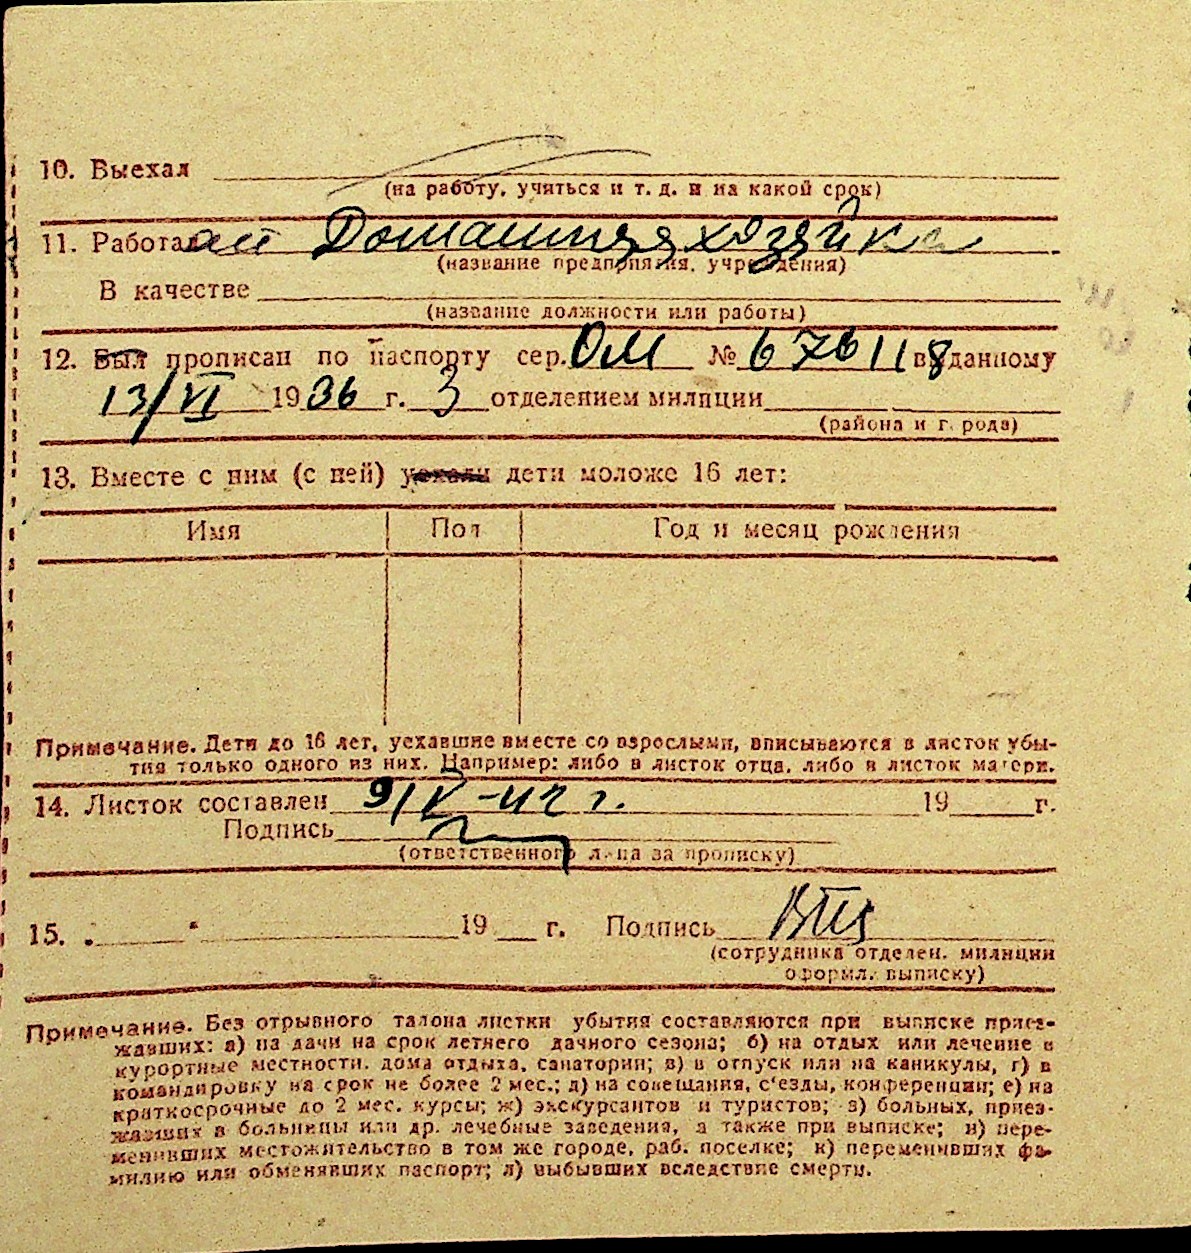 10. Выехал
(на работу, учиться и т. д. и на какой срок)
11. Работал Домашняя хозяйка
(название предприятия, учреждения)
В качестве
(название должности или работы)
12. Был прописан по паспорту сер. ОМ № 676118 выданному
13/VI 1936 г. 3 отделением милиции
(района и города)
13. Вместе с ним (с ней) уехали дети моложе 16 лет:
Имя Пол Год и месяц рождения
Примечание. Дети до 16 лет, уехавшие вместе со взрослыми, вписываются в листок убы-
тия только одного из них. Например: либо в листок отца, либо в листок матери.
14. Листок составлен 9/IV-42 г. 19 г.
Подпись
(ответственного лица за прописку)
15. 19 г. Подпись
(сотрудника отделен. милиции
оформл. выписку)
Примечание. Без отрывного талона листки убытия составляются при выписке приез-
жавших: а) на дачи на срок летнего дачного сезона; б) на отдых или лечение в
курортные местности, дома отдыха, санатории; в) в отпуск или на каникулы, г) в
командировку на срок не более 2 мес.; д) на совещания, с'езды, конференции; е) на
краткосрочные до 2 мес. курсы; ж) экскурсантов и туристов; з) больных, приез-
жавших в больницы или др. лечебные заведения, а также при выписке; и) пере-
менивших местожительство в том же городе, раб. поселке; к) переменивших фа-
милию или обменявших паспорт; л) выбывших вследствие смерти.